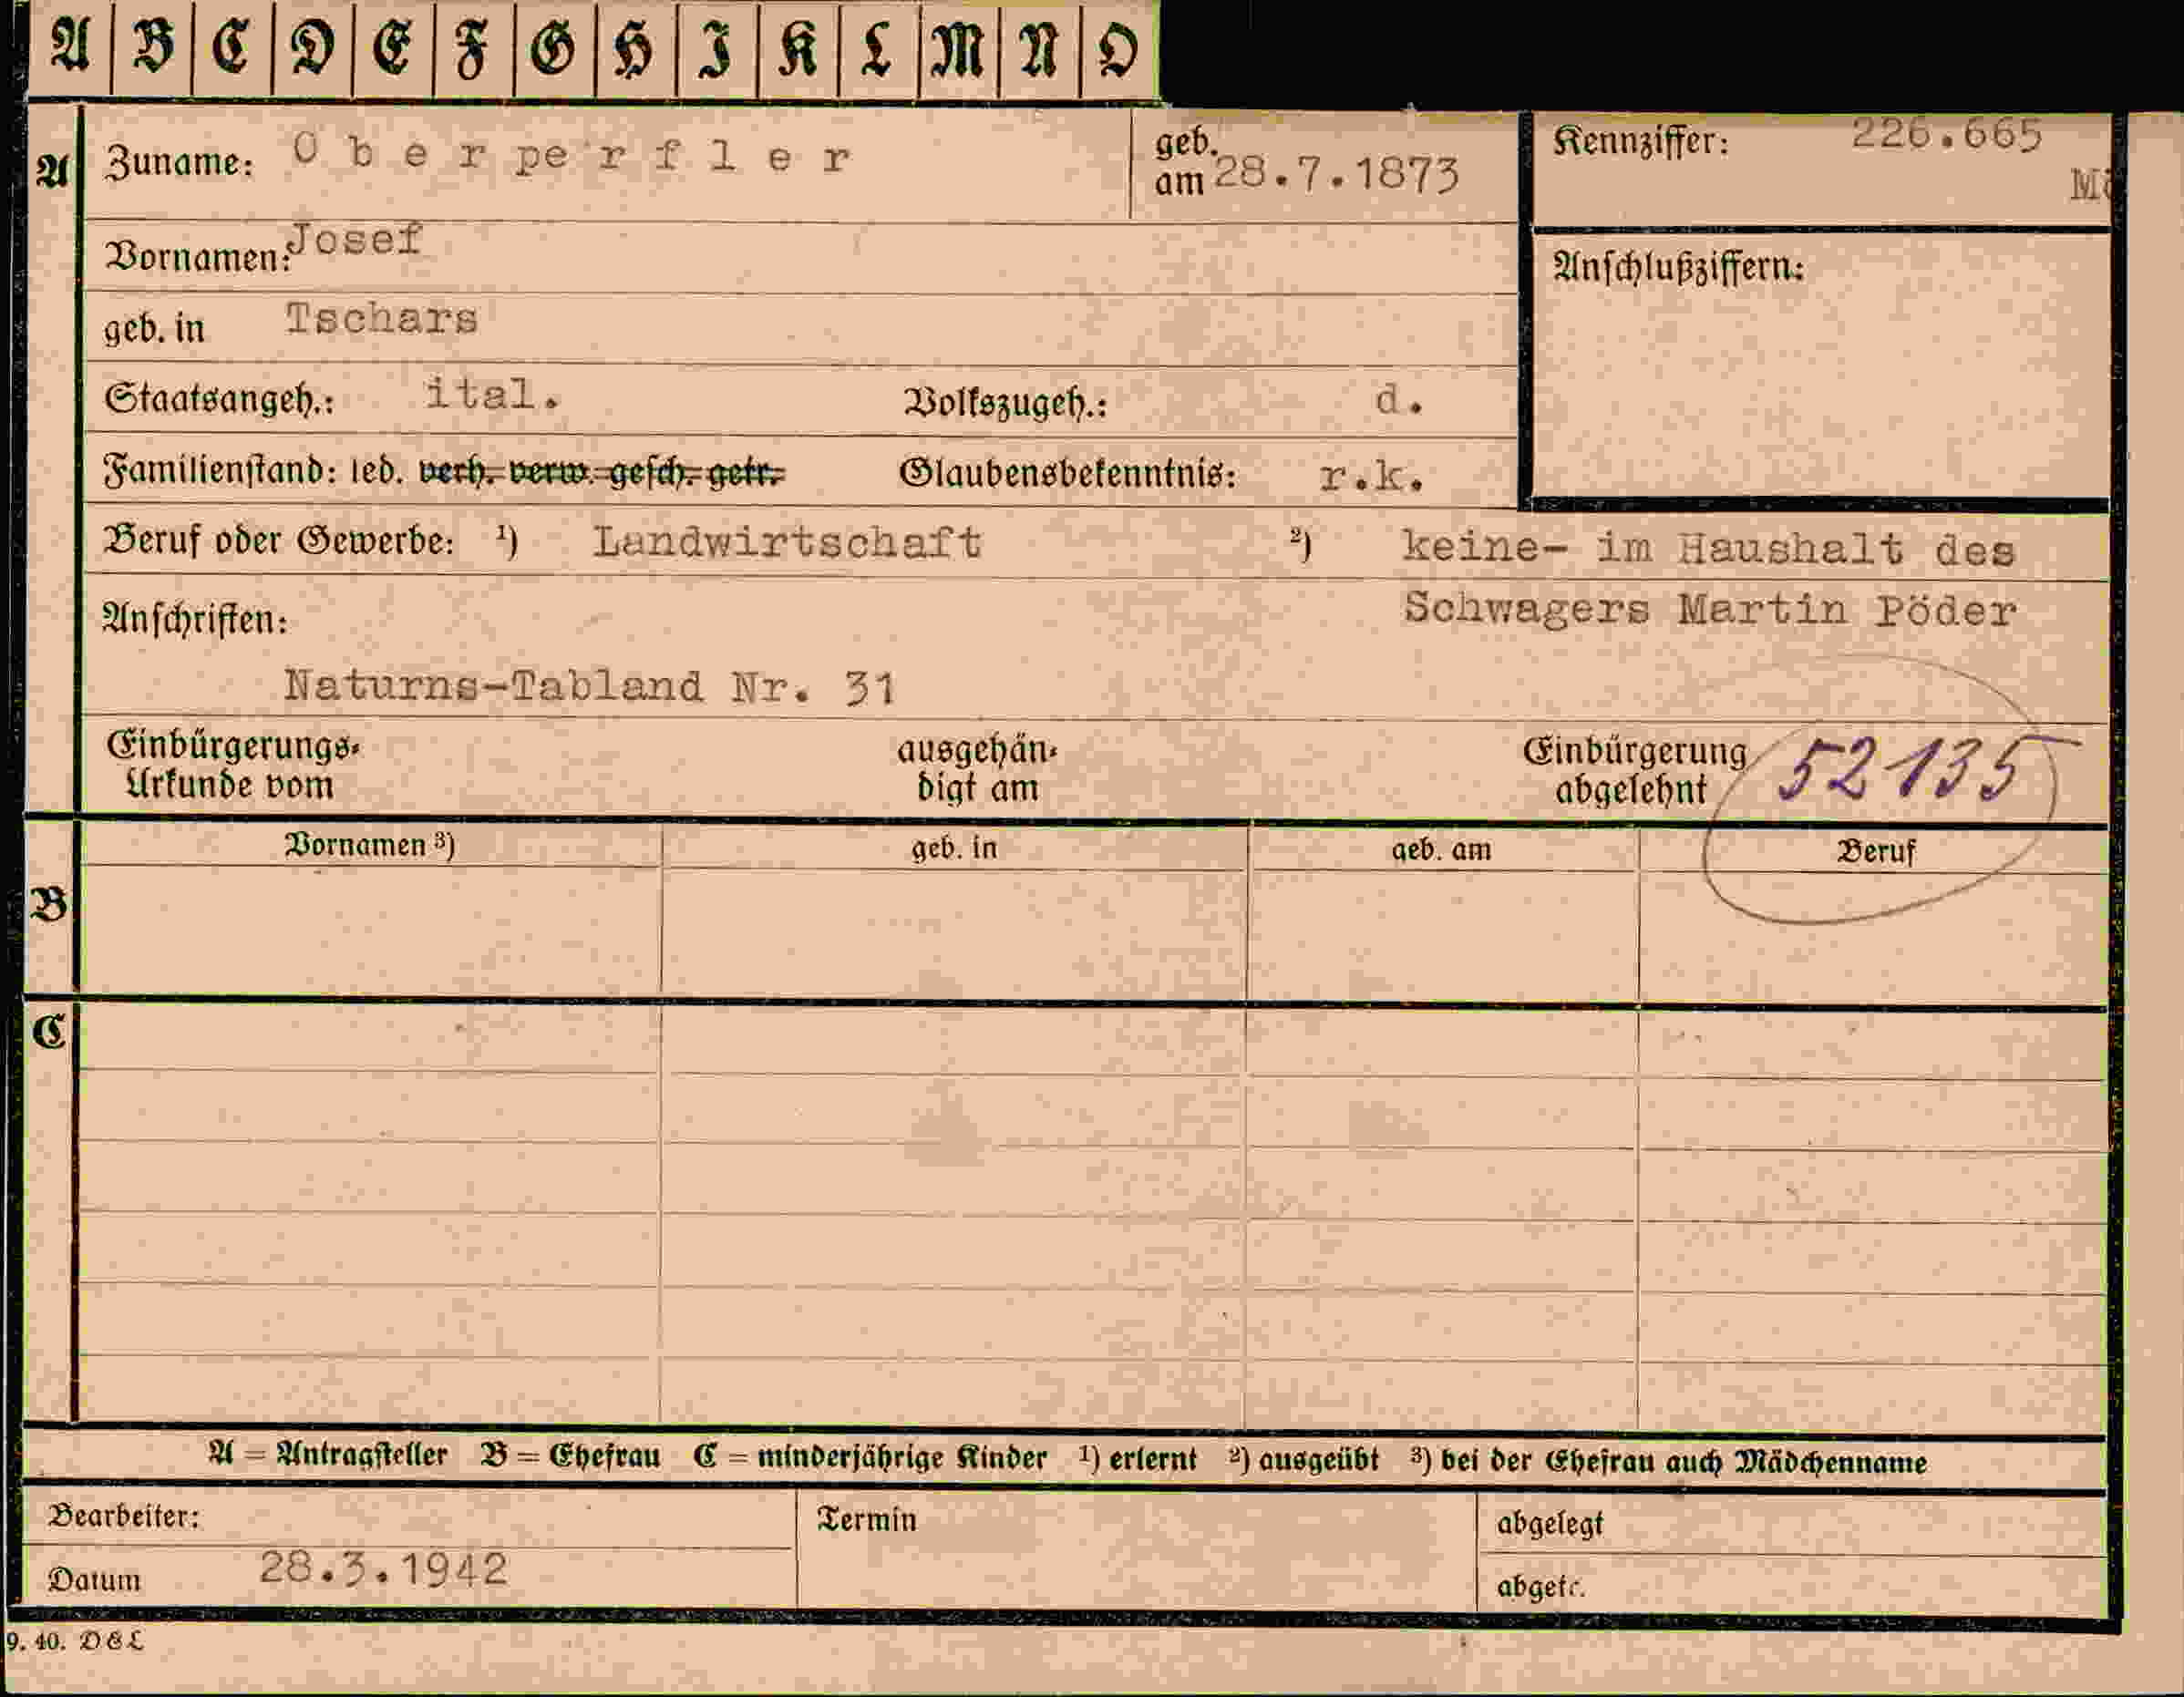 A B C D E F G H I K L M N O
A Zuname: Oberperfler geb. am 28.7.1873 Kennziffer: 226.665
Mö
Vornamen: Josef
Anschlußziffern:
geb. in Tschars
Staatsangeh.: ital. Volkszugeh.: d.
Familienstand: led. verh. verw. gesch. getr. Glaubensbekenntnis: r.k.
Beruf oder Gewerbe: ¹) Landwirtschaft ²) keine- im Haushalt des
Anschriften: Schwagers Martin Pöder
Naturns-Tabland Nr. 31
Einbürgerungs- ausgehän- Einbürgerung 52135
Urkunde vom digt am abgelehnt
Vornamen ³) geb. in geb. am Beruf
B
C
A = Antragsteller B = Ehefrau C = minderjährige Kinder ¹) erlernt ²) ausgeübt ³) bei der Ehefrau auch Mädchenname
Bearbeiter: Termin abgelegt
Datum 28.3.1942 abgetr.
9. 40. D&L